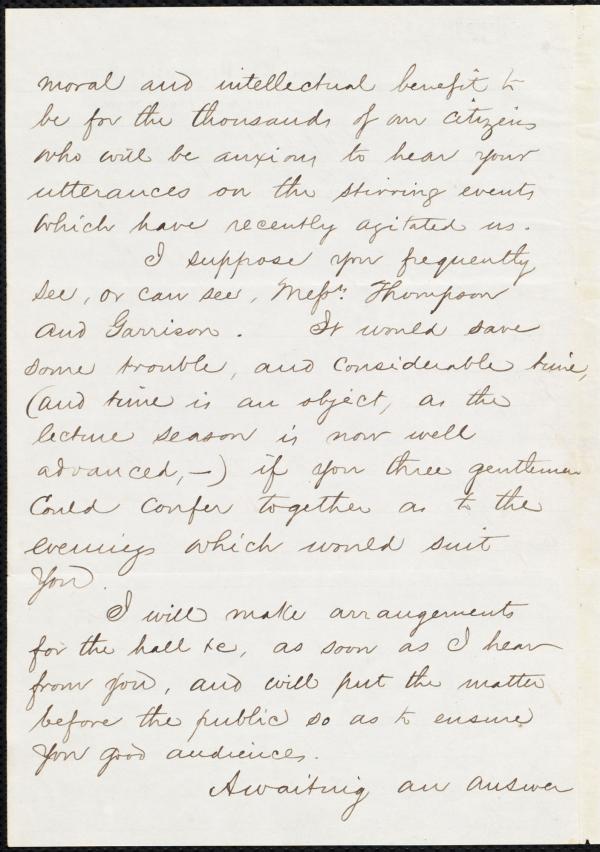 moral and intellectual benefit to
be for the thousands of our citizens
who will be anxious to hear your
utterances on the stirring events
which have recently agitated us.
I suppose you frequently
see, or can see, Messrs. Thompson
and Garrison. It would save
some trouble, and considerable time,
(and time is an object, as the
lecture season is now well
advanced,—) if you three gentlemen
could confer together as to the
evenings which would suit
you.
I will make arrangements
for the hall &c, as soon as I hear
from you, and will put the matter
before the public so as to ensure
you good audiences.
Awaiting an answer